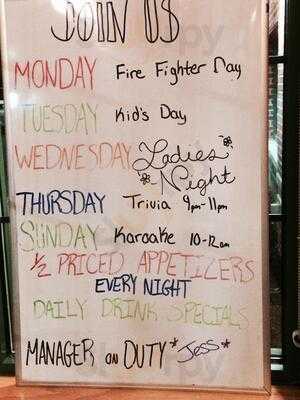 JOIN US
MONDAY Fire Fighter Day
TUESDAY Kid's Day
WEDNESDAY Ladies Night
THURSDAY Trivia 9pm-11pm
SUNDAY Karoake 10-12am
1/2 PRICED APPETIZERS
EVERY NIGHT
DAILY DRINK SPECIALS
MANAGER ON DUTY *Jess*